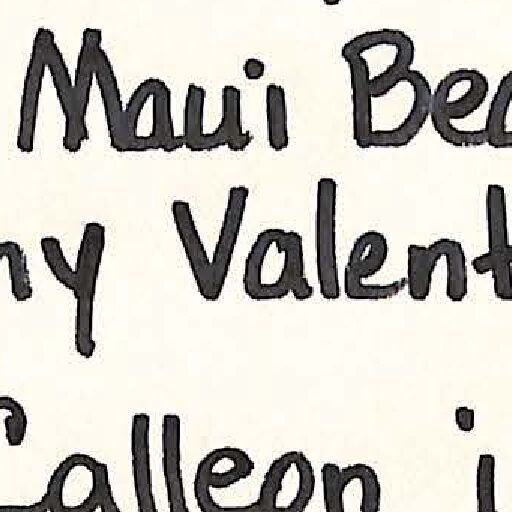 Maui Bea
ny Valent
Galleon i